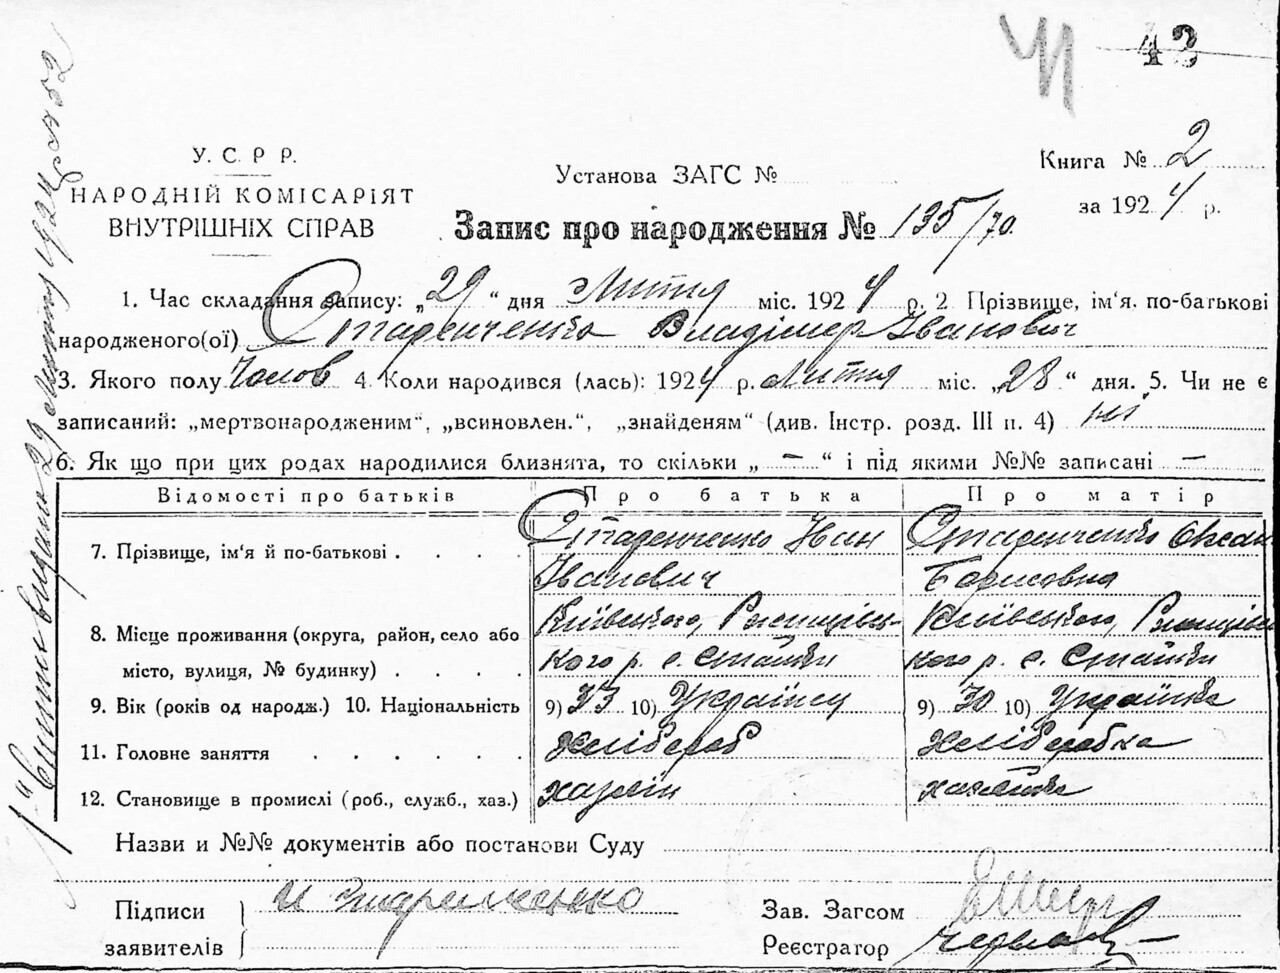 42
У. С. Р Р.
НАРОДНІЙ КОМІСАРІЯТ
ВНУТРІШНІХ СПРАВ
Установа ЗАГС №
Книга № 2
за 1924 р.
Запис про народження № 135/70.
1. Час складання запису: „29“ дня Лютня міс. 1924 р. 2 Прізвище, ім'я, по-батькові
народженого(ої) Владімер Іванович
3. Якого полу Чолов 4. Коли народився (лась): 1924 р. Лютня міс. „28“ дня. 5. Чи не є
записаний: „мертвонародженим“, „всиновлен.“, „знайденям“ (див. Інстр. розд. III п. 4) ні
6. Як що при цих родах народилися близнята, то скільки „ — “ і під якими №№ записані —
Відомості про батьків Про батька Про матір
7. Прізвище, ім'я й по-батькові . . . Іван Оксан
Іванович Борисовна
8. Місце проживання (округа, район, село або Київського, Київського,
місто, вулиця, № будинку) . . . . кого р. с. Стайки кого р. с. Стайки
9. Вік (років од народж.) 10. Національність 9) 33 10) Українец 9) 30 10) Українка
11. Головне заняття . . . . . Хлібороб Хліборобка
12. Становище в промислі (роб., служб., хаз.) хазяїн хазяйка
Назви и №№ документів або постанови Суду
Підписи
заявителів
Зав. Загсом
Реєстратор